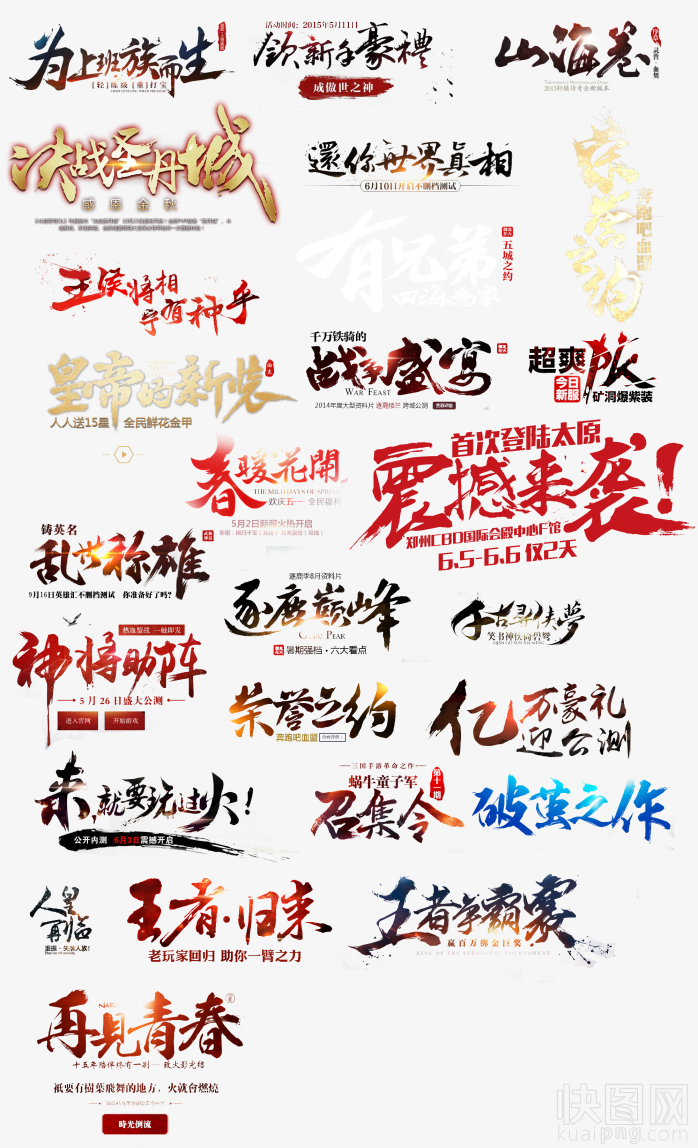 为上班族而生
[轻]练级 [重]打宝
活动时间：2015年5月11日
领新手豪禮
成傲世之神
山海卷
2013轩辕传奇全新版本
决战圣丹城
感恩金秋
還你世界真相
6月10日开启不删档测试
荣誉之约
奔跑吧血盟
有兄弟
四海为家
五城之约
王侯将相
宁有种乎
皇帝的新装
人人送15星 全民鲜花金甲
千万铁骑的
战争盛宴
WAR FEAST
2014年度大型资料片 逐鹿楼兰 跨域公测
超爽
今日
新服
矿洞爆紫装
春暖花開
THE MILD DAYS OF SPRING
欢庆五一 全民福利
5月2日新服火热开启
首次登陆太原
震撼来袭！
郑州CBD国际会殿中心F馆
6.5-6.6 仅2天
铸英名
乱世称雄
9月16日英雄汇不删档测试 你准备好了吗？
逐鹿季8月资料片
逐鹿巅峰
暑期强档·六大看点
千古寻侠夢
笑书神侠倚碧鸳
热血盟战 一触即发
神将助阵
5 月 26 日盛大公测
进入官网
开始游戏
荣誉之约
奔跑吧血盟
亿万豪礼
迎公测
来，就要玩过火！
公开内测 6月3日震撼开启
三国手游革命之作
蜗牛童子军
第十一期
召集令
破茧之作
人皇
再临
重振·失落人族！
王者·归来
老玩家回归 助你一臂之力
王者争霸赛
赢百万绑金巨奖
KING OF THE STRONGEST TOURNAMENT
再見青春
十五年陪伴终有一别 — 致火影完结
祇要有樹葉飛舞的地方，火就會燃燒
時光倒流
快图网
kuaipng.com